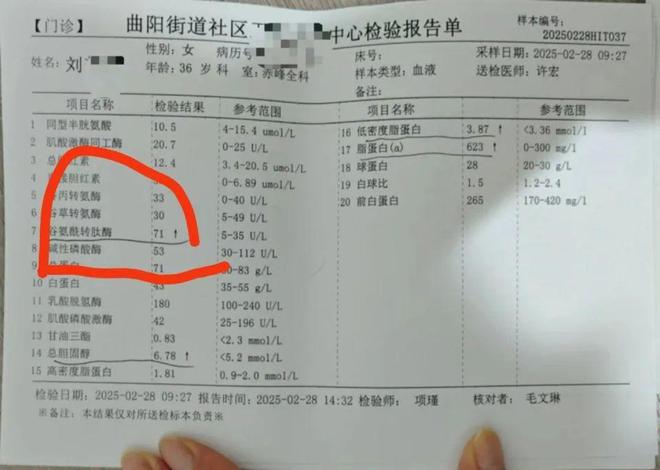 【门诊】 曲阳街道社区 中心检验报告单 样本编号:
20250228HIT037
姓名: 刘 性别: 女 病历号 床号: 采样日期: 2025-02-28 09:27
年龄: 36 岁 科 室: 赤峰全科 样本类型: 血液 送检医师: 许宏
备注:
项目名称 检验结果 参考范围 项目名称 检验结果 参考范围
1 同型半胱氨酸 10.5 4-15.4 umol/L 16 低密度脂蛋白 3.87 ↑ <3.36 mmol/L
2 肌酸激酶同工酶 20.7 0-25 U/L 17 脂蛋白(a) 623 ↑ 0-300 mg/l
3 总胆红素 12.4 3.4-20.5 umol/L 18 球蛋白 28 20-30 g/L
4 胆红素 0-6.89 umol/L 19 白球比 1.5 1.2-2.4
5 丙转氨酶 33 0-40 U/L 20 前白蛋白 265 170-420 mg/l
6 草转氨酶 30 5-49 U/L
7 谷氨酰转肽酶 71 ↑ 5-35 U/L
8 碱性磷酸酶 53 30-112 U/L
9 总蛋白 71 60-83 g/L
10 白蛋白 43 35-55 g/L
11 乳酸脱氢酶 180 100-240 U/L
12 肌酸磷酸激酶 42 25-196 U/L
13 甘油三酯 0.83 <2.3 mmol/L
14 总胆固醇 6.78 ↑ <5.2 mmol/L
15 高密度脂蛋白 1.81 0.9-2.0 mmol/L
检验日期: 2025-02-28 09:27 报告时间: 2025-02-28 14:32 检验师: 项瑾 核对者: 毛文琳
※备注: 本结果仅对所送检标本负责※